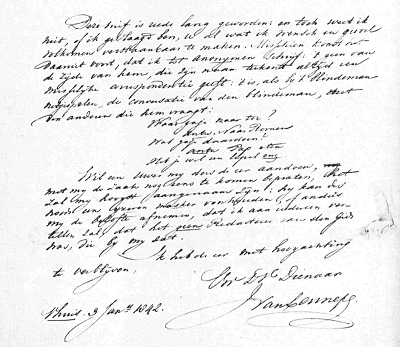 Deze brief is reeds lang geworden: en toch weet ik
niet, of ik geslaagd ben, U al wat ik wensch en gevoel
volkomen verstaanbaar te maken. Misschien komt er
daaruit voort, dat ik tot anonymen schrijf: 't een van
de zijde van hem, die zijn naam teekent altijd een
correspondentie geeft: 't is, als bij 't blindeman
de conversatie van den blindeman, met
den anderen die hem vraagt:
Waar gaje naar toe?
antw. Naar Hoorn
Wat gaje daar doen?
antw. Pap eten
Heb je wel een lepel enz
Wil een Uwer my de eer aandoen,
met my de zaak nog eens te komen bepraten, het
zal my hoogst aangenaam zijn: hy kan des
noods een masker voorhouden, of anders
my de belofte afnemen, dat ik aan niemand ver-
tellen zal dat het een Redacteur van den Gids
was, die by my zat.
Ik heb de eer met hoogachting
te verblijven,
Uw D. W. Dienaar
J. van Lennep
Thuis. 3 Jany 1842.